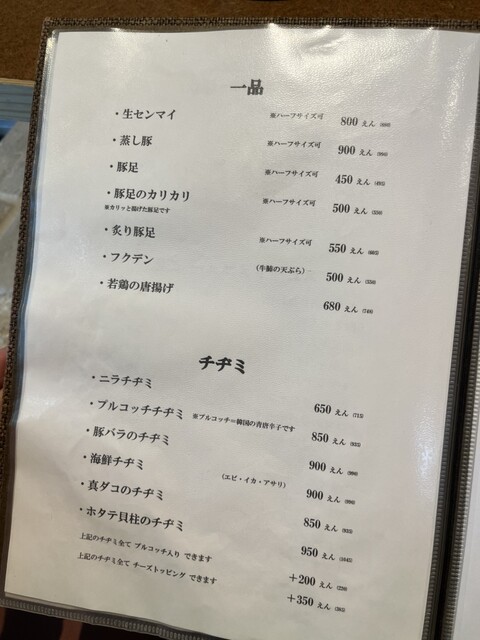 一品
・生センマイ ※ハーフサイズ可 800 えん (880)
・蒸し豚 ※ハーフサイズ可 900 えん (990)
・豚足 ※ハーフサイズ可 450 えん (495)
・豚足のカリカリ ※ハーフサイズ可 500 えん (550)
※カリッと揚げた豚足です
・炙り豚足 ※ハーフサイズ可 550 えん (605)
・フクデン (牛肺の天ぷら) 500 えん (550)
・若鶏の唐揚げ 680 えん (748)
チヂミ
・ニラチヂミ 650 えん (715)
・プルコッチチヂミ ※プルコッチ=韓国の青唐辛子です 850 えん (935)
・豚バラのチヂミ 900 えん (990)
・海鮮チヂミ (エビ・イカ・アサリ) 900 えん (990)
・真ダコのチヂミ 850 えん (935)
・ホタテ貝柱のチヂミ 950 えん (1045)
上記のチヂミ全て プルコッチ入り できます +200 えん (220)
上記のチヂミ全て チーズトッピング できます +350 えん (385)